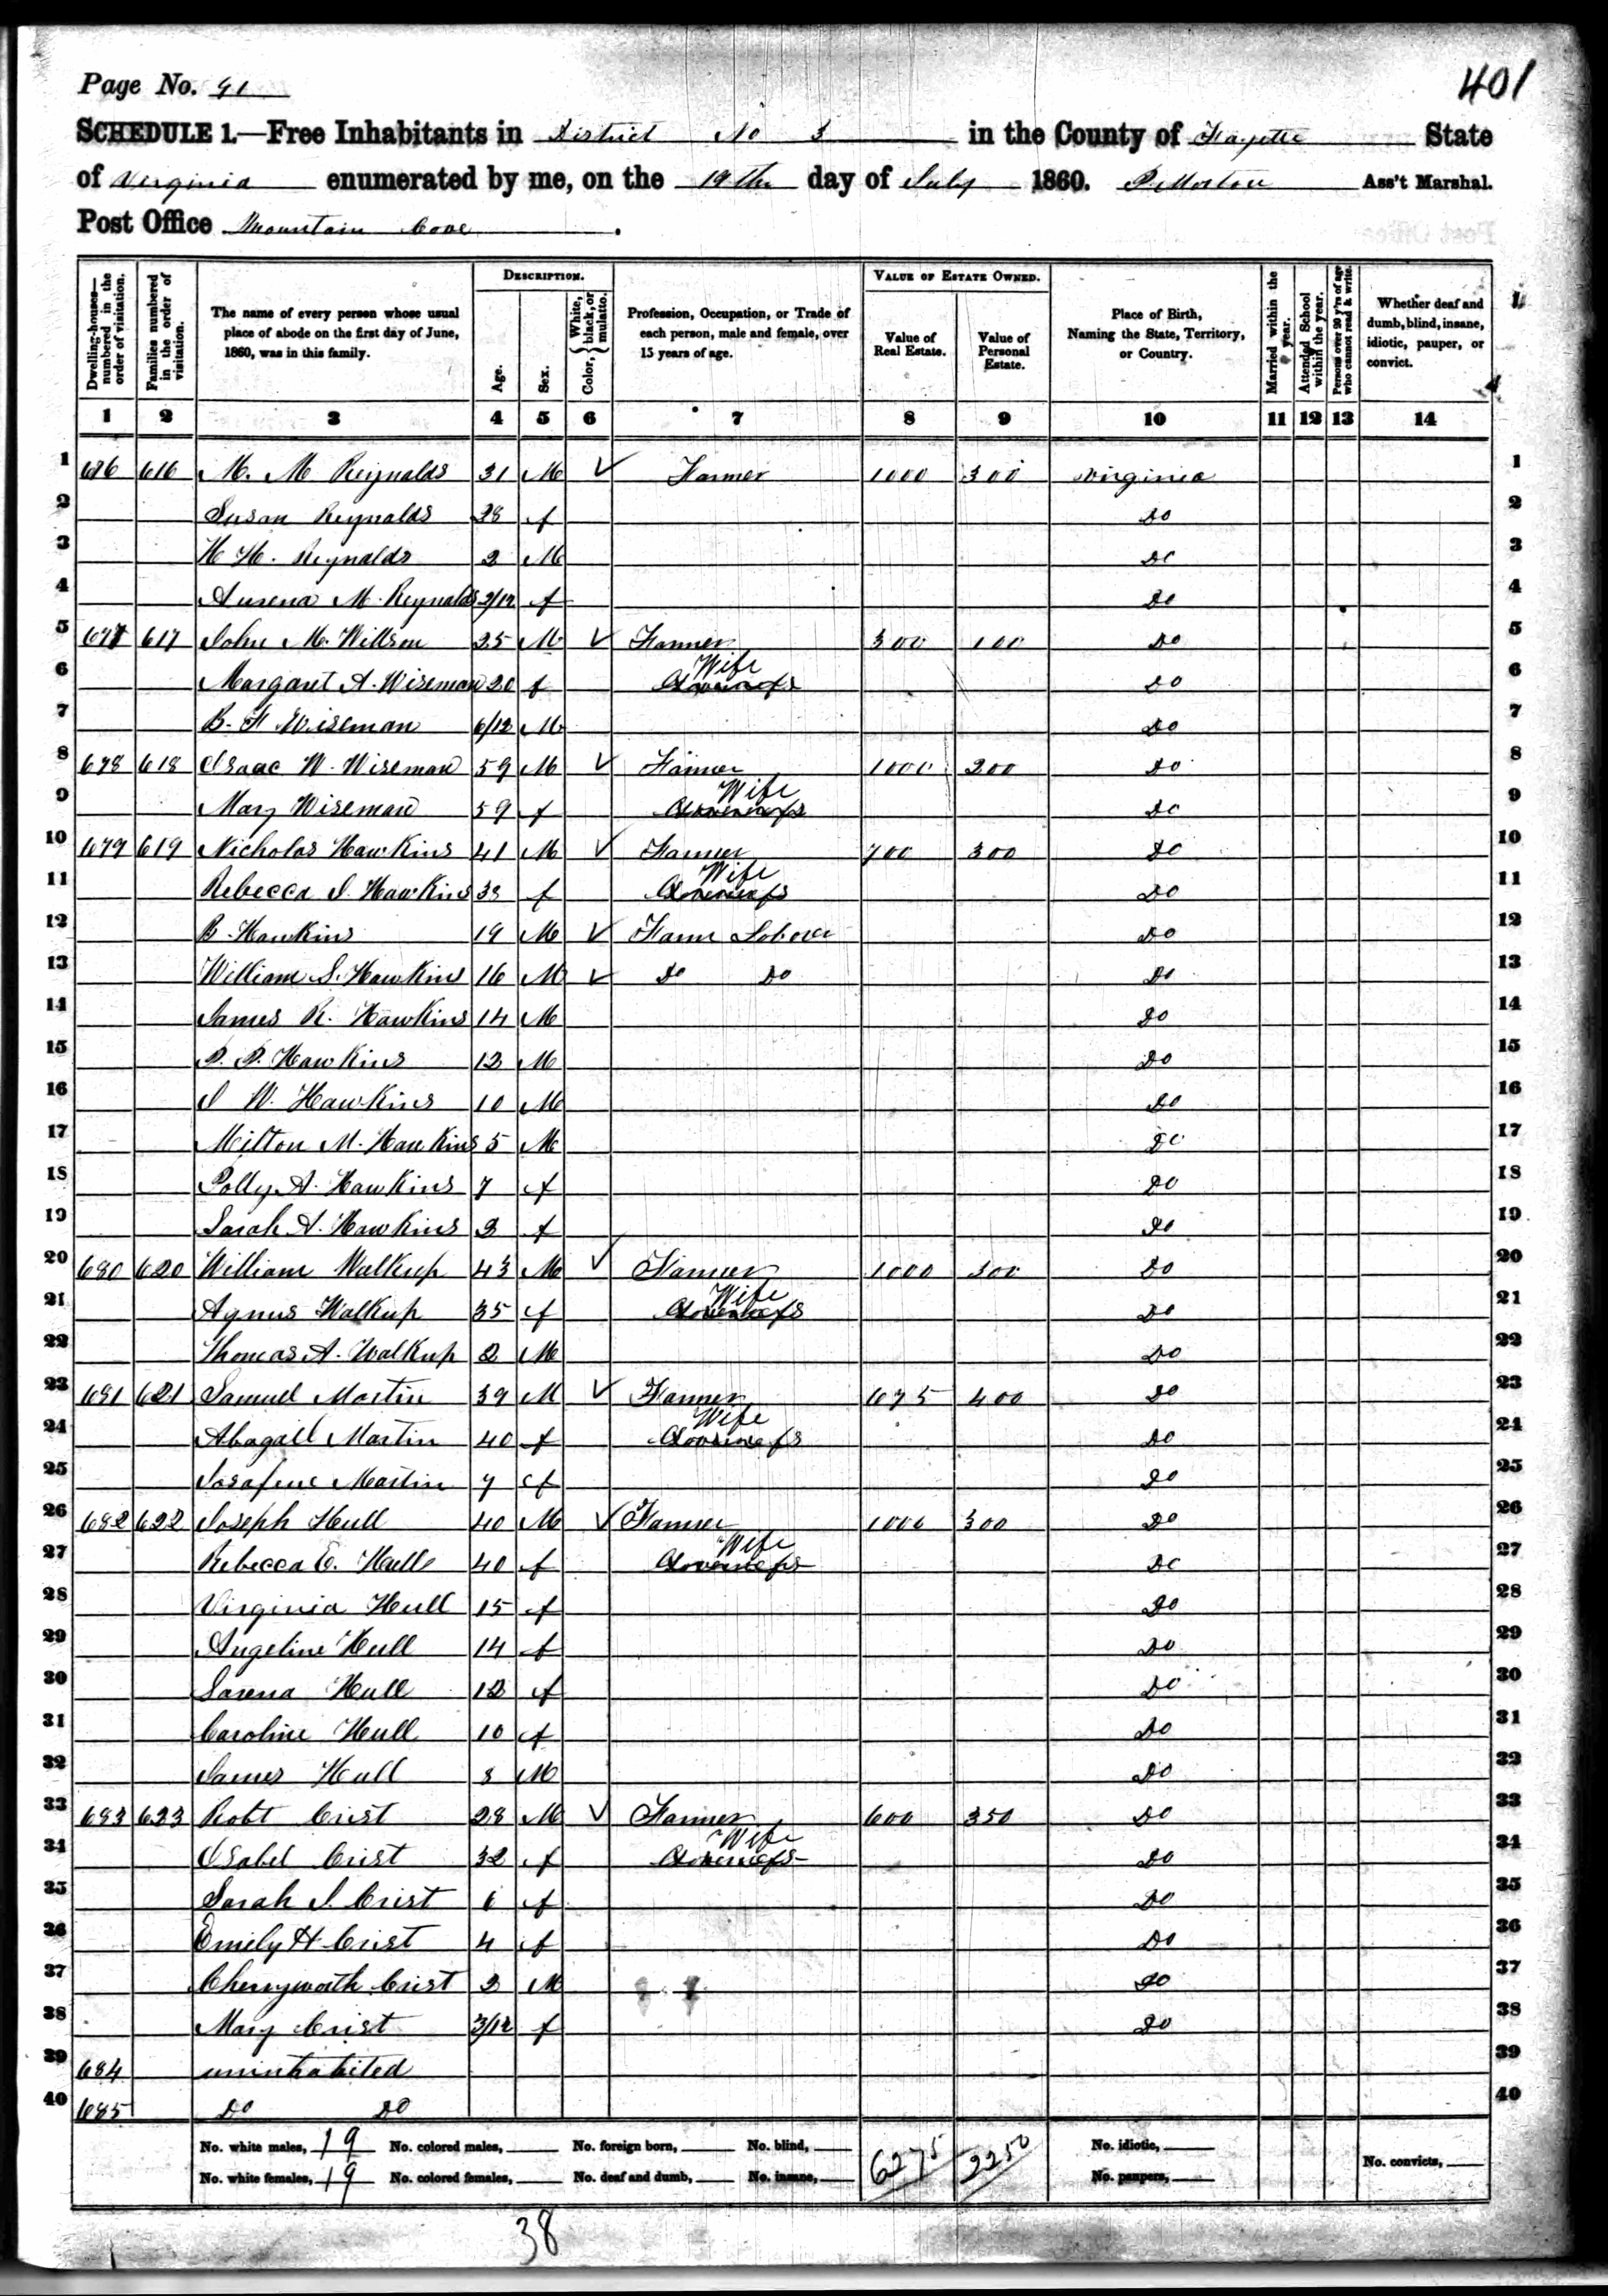 Page No. 91
401
SCHEDULE 1.—Free Inhabitants in District No 3 in the County of Fayette State
of Virginia enumerated by me, on the 19th day of July 1860. P. Morton Ass't Marshal.
Post Office Mountain Cove.
Dwelling-houses—numbered in the order of visitation. Families numbered in the order of visitation. The name of every person whose usual place of abode on the first day of June, 1860, was in this family. DESCRIPTION. Age. Sex. Color, White, black, or mulatto. Profession, Occupation, or Trade of each person, male and female, over 15 years of age. VALUE OF ESTATE OWNED. Value of Real Estate. Value of Personal Estate. Place of Birth, Naming the State, Territory, or Country. Married within the year. Attended School within the year. Persons over 20 y'rs of age who cannot read & write. Whether deaf and dumb, blind, insane, idiotic, pauper, or convict.
1 2 3 4 5 6 7 8 9 10 11 12 13 14
1 676 616 M. M Reynalds 31 M Farmer 1000 300 Virginia 1
2 Susan Reynalds 28 f Do 2
3 H H. Reynalds 2 M Do 3
4 M. Reynalds 2/12 f Do 4
5 677 617 John M. Willson 25 M Farmer 300 100 Do 5
6 Margaret A. Wiseman 20 f Wife Do 6
7 B. F Wiseman 6/12 M Do 7
8 678 618 Isaac W. Wiseman 59 M Farmer 1000 200 Do 8
9 Mary Wiseman 59 f Wife Do 9
10 679 619 Nicholas Hawkins 41 M Farmer 700 300 Do 10
11 Rebecca J. Hawkins 38 f Wife Do 11
12 B. Hawkins 19 M Farm Laborer Do 12
13 William S. Hawkins 16 M Do Do Do 13
14 James R. Hawkins 14 M Do 14
15 P. P. Hawkins 12 M Do 15
16 J W. Hawkins 10 M Do 16
17 Milton M. Hawkins 5 M Do 17
18 Polly A. Hawkins 7 f Do 18
19 Sarah A. Hawkins 3 f Do 19
20 680 620 William Walkup 43 M Farmer 1000 300 Do 20
21 Agnus Walkup 35 f Wife Do 21
22 Thomas A. Walkup 2 M Do 22
23 681 621 Samuel Martin 39 M Farmer 675 400 Do 23
24 Abagail Martin 40 f Wife Do 24
25 Josafene Martin 7 f Do 25
26 682 622 Joseph Hull 40 M Farmer 1000 300 Do 26
27 Rebecca E. Hull 40 f Wife Do 27
28 Virginia Hull 15 f Do 28
29 Angeline Hull 14 f Do 29
30 Sarena Hull 12 f Do 30
31 Caroline Hull 10 f Do 31
32 James Hull 8 M Do 32
33 683 623 Robt Crist 28 M Farmer 600 350 Do 33
34 Isabel Crist 32 f Wife Do 34
35 Sarah J. Crist 6 f Do 35
36 Emily H Crist 4 f Do 36
37 Cherryworth Crist 2 M Do 37
38 Mary Crist 3/12 f Do 38
39 684 uninhabited 39
40 685 Do Do 40
No. white males, 19 No. colored males, No. foreign born, No. blind, 6275 2250 No. idiotic,
No. white females, 19 No. colored females, No. deaf and dumb, No. insane, No. paupers, No. convicts,
38